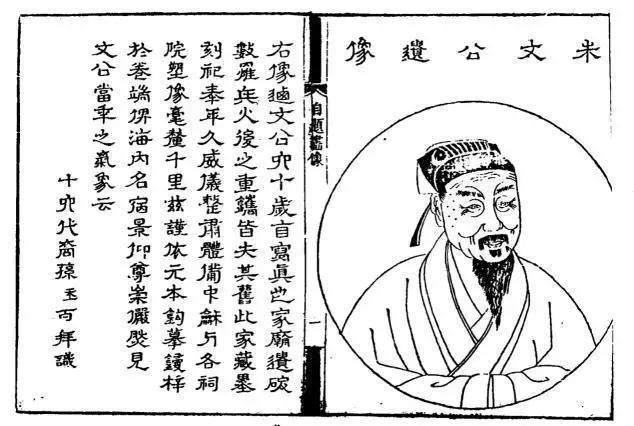 朱文公遺像
自題畫像
一
右像迺文公六十歲自寫真也家廟遺碑
數罹兵火後之重鐫皆失其舊此家藏墨
刻祀奉年久威儀整肅體備中龢与各祠
院塑像毫釐千里茲謹依元本鉤摹鋟梓
於卷端俾海內名宿景仰尊崇儼然見
文公當年之氣象云
十六代裔孫玉百拜識